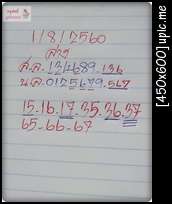 1/8/2560
ล่าง
ส.ล. 134689.136
น.ล. 0125679.567
15.16.17.35.36.37
65-66-67
[450x600] upic.me